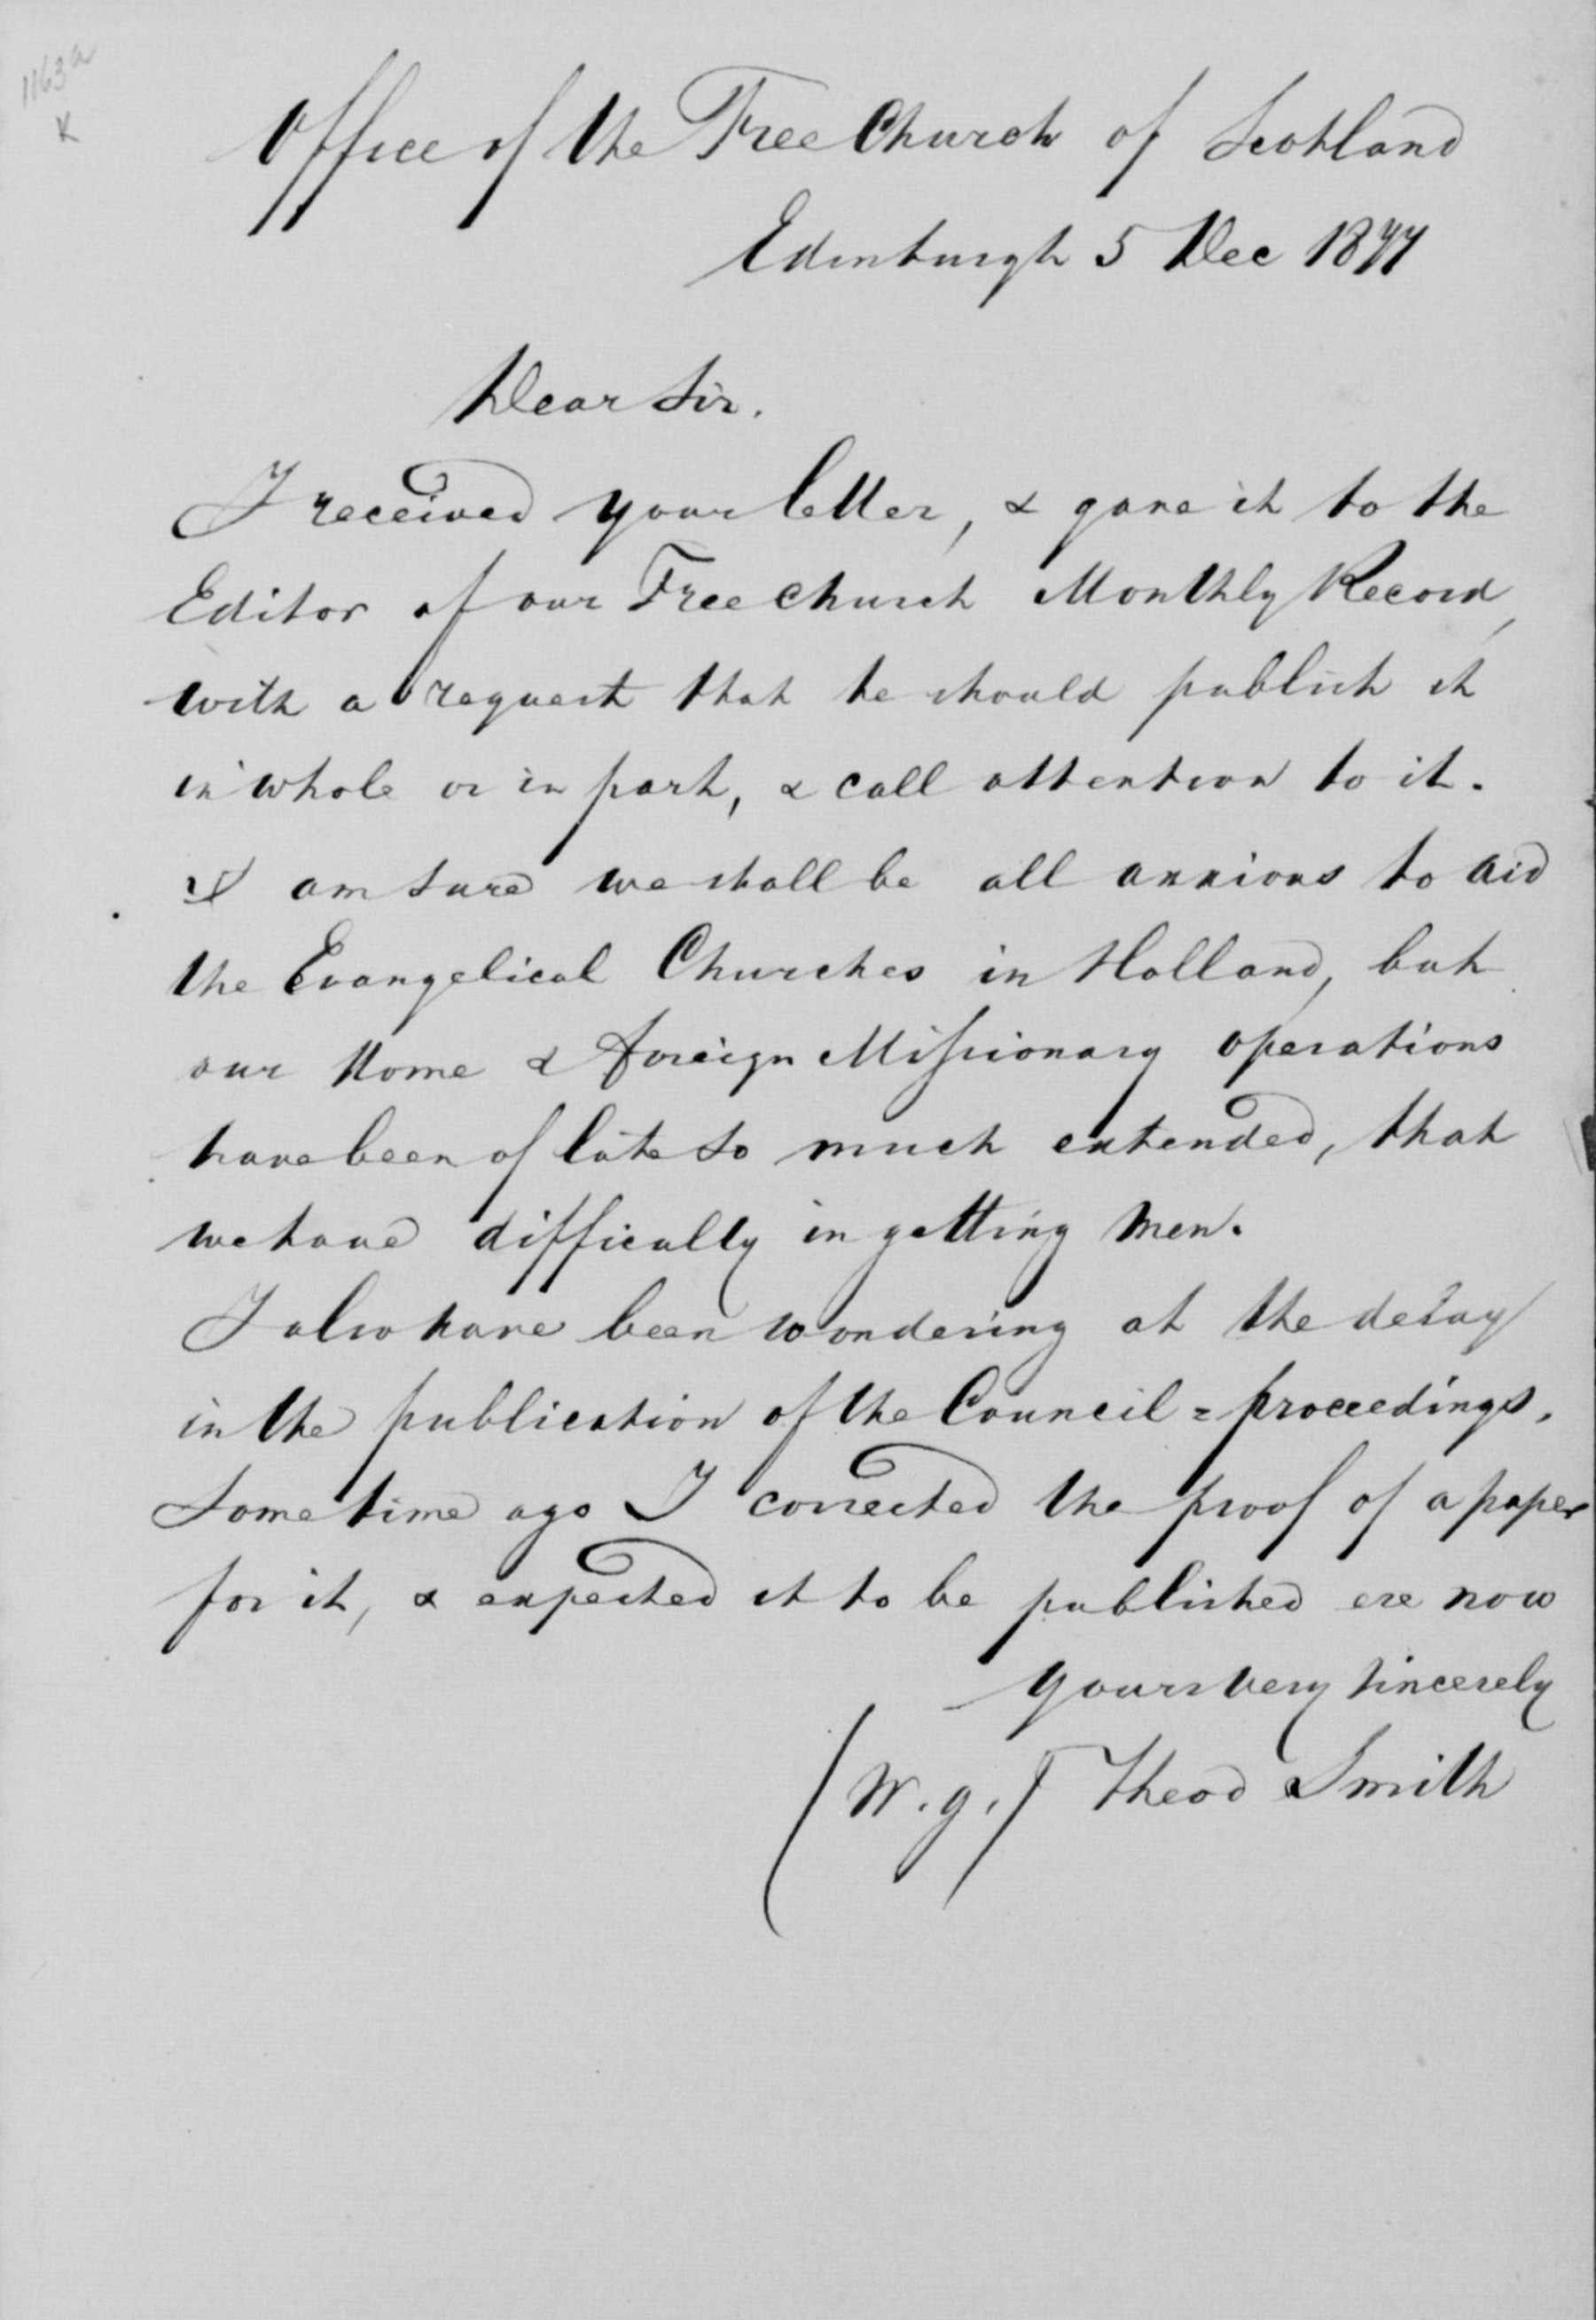 1163a
x
Office of the Free Church of Scotland
Edinburgh 5 Dec 1877
Dear Sir.
I received your letter, & gave it to the
Editor of our Free Church Monthly Record,
with a request that he should publish it
in whole or in part, & call attention to it.
I am sure we shall be all anxious to aid
the Evangelical Churches in Holland, but
our Home & foreign Missionary operations
have been of late so much extended, that
we have difficulty in getting men.
I also have been wondering at the delay
in the publication of the Council = proceedings.
Some time ago I corrected the proof of a paper
for it, & expected it to be published ere now
Yours very sincerely
(W. g.) Theod Smith